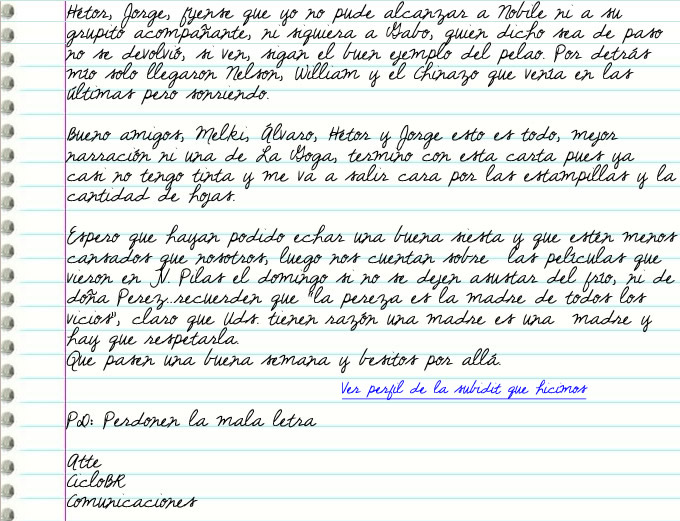 Hétor, Jorge, fijense que yo no pude alcanzar a Nobile ni a su
grupito acompañante, ni siquiera a Gabo, quien dicho sea de paso
no se devolvió, si ven, sigan el buen ejemplo del pelao. Por detrás
mío solo llegaron Nelson, William y el Chinazo que venía en las
últimas pero sonriendo.
Bueno amigos, Melki, Álvaro, Hétor y Jorge esto es todo, mejor
narración ni una de La Goga, termino con esta carta pues ya
casi no tengo tinta y me va a salir cara por las estampillas y la
cantidad de hojas.
Espero que hayan podido echar una buena siesta y que estén menos
cansados que nosotros, luego nos cuentan sobre las películas que
vieron en JV. Pilas el domingo si no se dejen asustar del frío, ni de
doña Perez...recuerden que "la pereza es la madre de todos los
vicios", claro que Uds. tienen razón una madre es una madre y
hay que respetarla.
Que pasen una buena semana y besitos por allá.
Ver perfil de la subidit que hicimos
P.D: Perdonen la mala letra
Atte
CicloBR
Comunicaciones